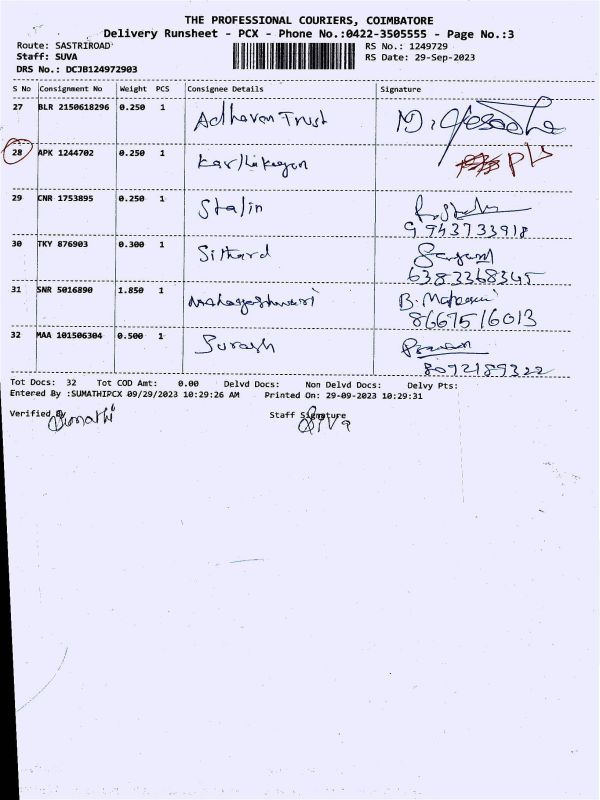 THE PROFESSIONAL COURIERS, COIMBATORE
Delivery Runsheet - PCX - Phone No.:0422-3505555 - Page No.:3
Route: SASTRIROAD
RS No.: 1249729
Staff: SUVA
RS Date: 29-Sep-2023
DRS No.: DCJB124972903
S No Consignment No Weight PCS Consignee Details Signature
27 BLR 2150618296 0.250 1 Adhavan Trust
28 APK 1244702 0.250 1 Karthikeyan
29 CNR 1753895 0.250 1 Stalin
9943733918
30 TKY 876903 0.300 1
6383368345
31 SNR 5016890 1.850 1
8667516013
32 MAA 101506304 0.500 1 Suresh
8072189322
Tot Docs: 32 Tot COD Amt: 0.00 Delvd Docs: Non Delvd Docs: Delvy Pts:
Entered By :SUMATHIPCX 09/29/2023 10:29:26 AM Printed On: 29-09-2023 10:29:31
Verified By Staff Signature
Sumathi Siva